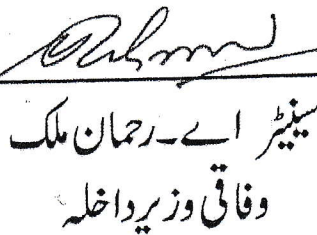 سینیٹر اے۔رحمان ملک
وفاقی وزیر داخلہ